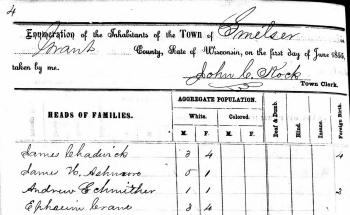 4
Enumeration of the Inhabitants of the Town of Smelser
Grant County, State of Wisconsin, on the first day of June 1855,
taken by me. John C. Rock
Town Clerk.
HEADS OF FAMILIES. AGGREGATE POPULATION. Deaf & Dumb. Blind. Insane. Foreign Birth.
White. Colored.
M. F. M. F.
James Chadwick 3 4 4
James 0 1
Andrew 1 1
Ephraim Crane 3 4